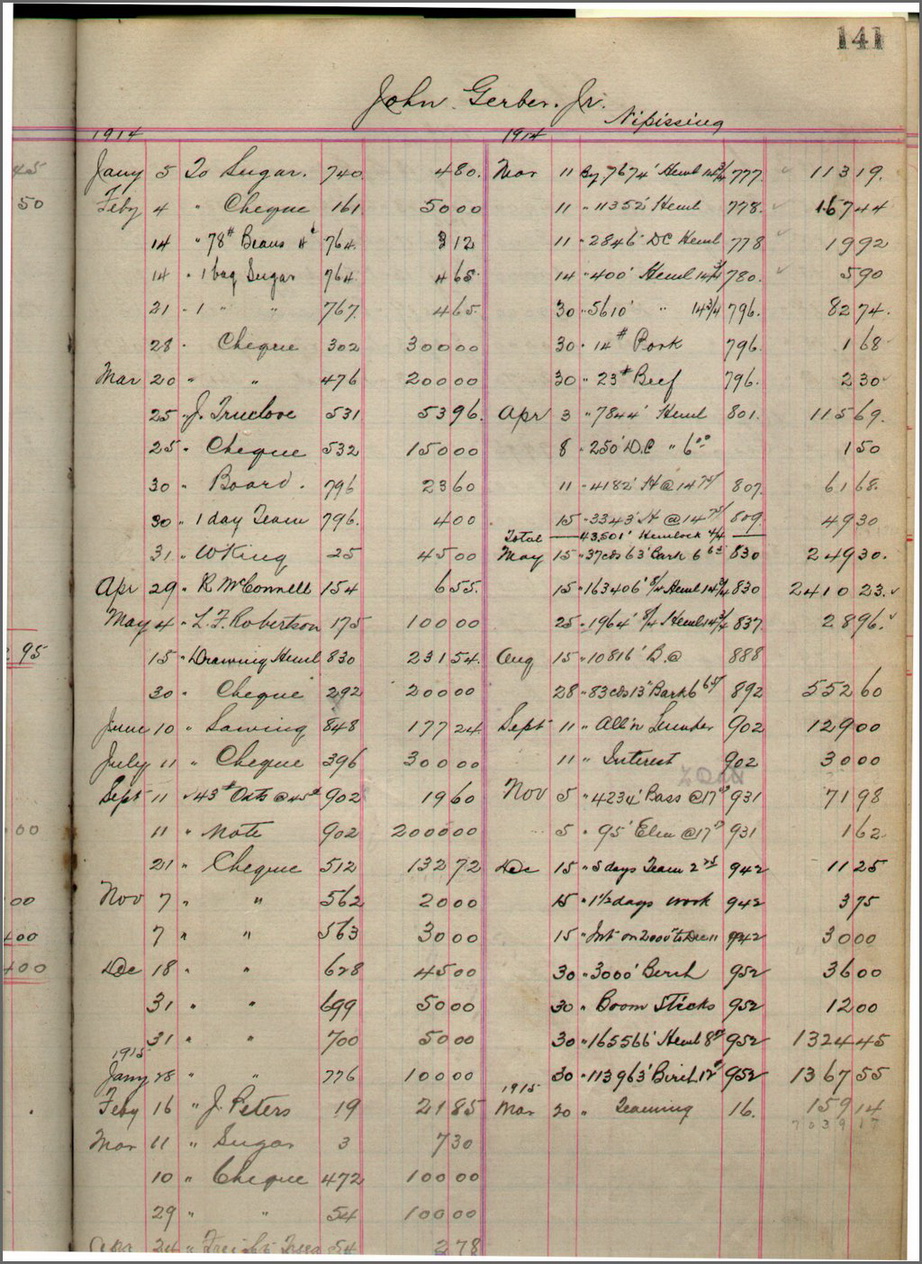 141
John Gerber. Jr.
Nipissing
1914
Jany 5 To Sugar. 740 4 80.
Feby 4 " Cheque 161. 50 00
14 " 78# Beans 4¢ 764. 3 12
14 " 1 bag Sugar 764. 4 65
21 " 1 " " 767. 4 65.
28 " Cheque 302 300 00
Mar 20 " " 476 200 00
25 " J. Truelove 531 53 96.
25 " Cheque 532 150 00
30 " Board. 796 23 60
30 " 1 day Team 796. 4 00.
31. " W King 25 45 00
Apr 29 " R McConnell 154 6 55.
May 4 " L.F. Robertson 175 100 00
15 " Drawing Heml 830 231 54.
30 " Cheque 292 200 00
June 10 " Sawing 848 177 24
July 11 " Cheque 396 300 00
Sept 11 " 43# Oats @ 45¢ 902 19 60
11 " Note 902 2000 00
21 " Cheque 512 132 72
Nov 7 " " 562 20 00
7 " " 563 30 00
Dec 18 " " 628 45 00
31 " " 699 50 00
31 " " 700 50 00
1915
Jany 28 " " 776 100 00
Feby 16 " J. Peters 19 21 85
Mar 11 " Sugar 3 7 30
10 " Cheque 472 100 00
29 " " 54 100 00
Apr 24 " Freight 54 2 78
1914
Mar 11 By 7674' Heml 14 3/4 777. 113 19.
11 " 11352' Heml 778. 167 44
11 " 2846' DC Heml 778 19 92
14 " 400' Heml 14 3/4 780. 5 90
30 " 5610' " 14 3/4 796. 82 74.
30 " 14# Pork 796. 1 68
30 " 23# Beef 796. 2 30
Apr 3 " 7844' Heml 801. 115 69.
8 " 250' D.C " 6 00 1 50
11 " 4182' H @ 14 75/ 807. 61 68.
15 " 3343' H @ 14 75/ 809 49 30
Total 43,501' Hemlock 4/4
May 15 " 37 cds 63' Bark 6 65 830 249 30.
15 " 163406' 8/4 Heml 14 3/4 830 2410 23.
25 " 1964' 8/4 Heml 14 3/4 837. 28 96.
Aug 15 " 10816' B.@ 888
28 " 83 cds 13' Bark 6 65/ 892 552 60
Sept 11 " All'n Lumber 902 129 00
11 " Interest 902 30 00
Nov 5 " 4234' Bass @ 17 00 931 71 98
5 " 95' Elm @ 17 00 931 1 62
Dec 15 " 5 days Team 2 25 942 11 25
15 " 1 1/2 days work 942 3 75
15 " Int on 2000 to Dec 11 942 30 00
30 " 3000' Birch 952 36 00
30 " Boom Sticks 952 12 00
30 " 165566' Heml 8 00 952 1324 45
30 " 113963' Birch 12 00 952 1367 55
1915
Mar 20 " Teaming 16. 159 14
7039 17
45
50
2 95
00
00
400
400